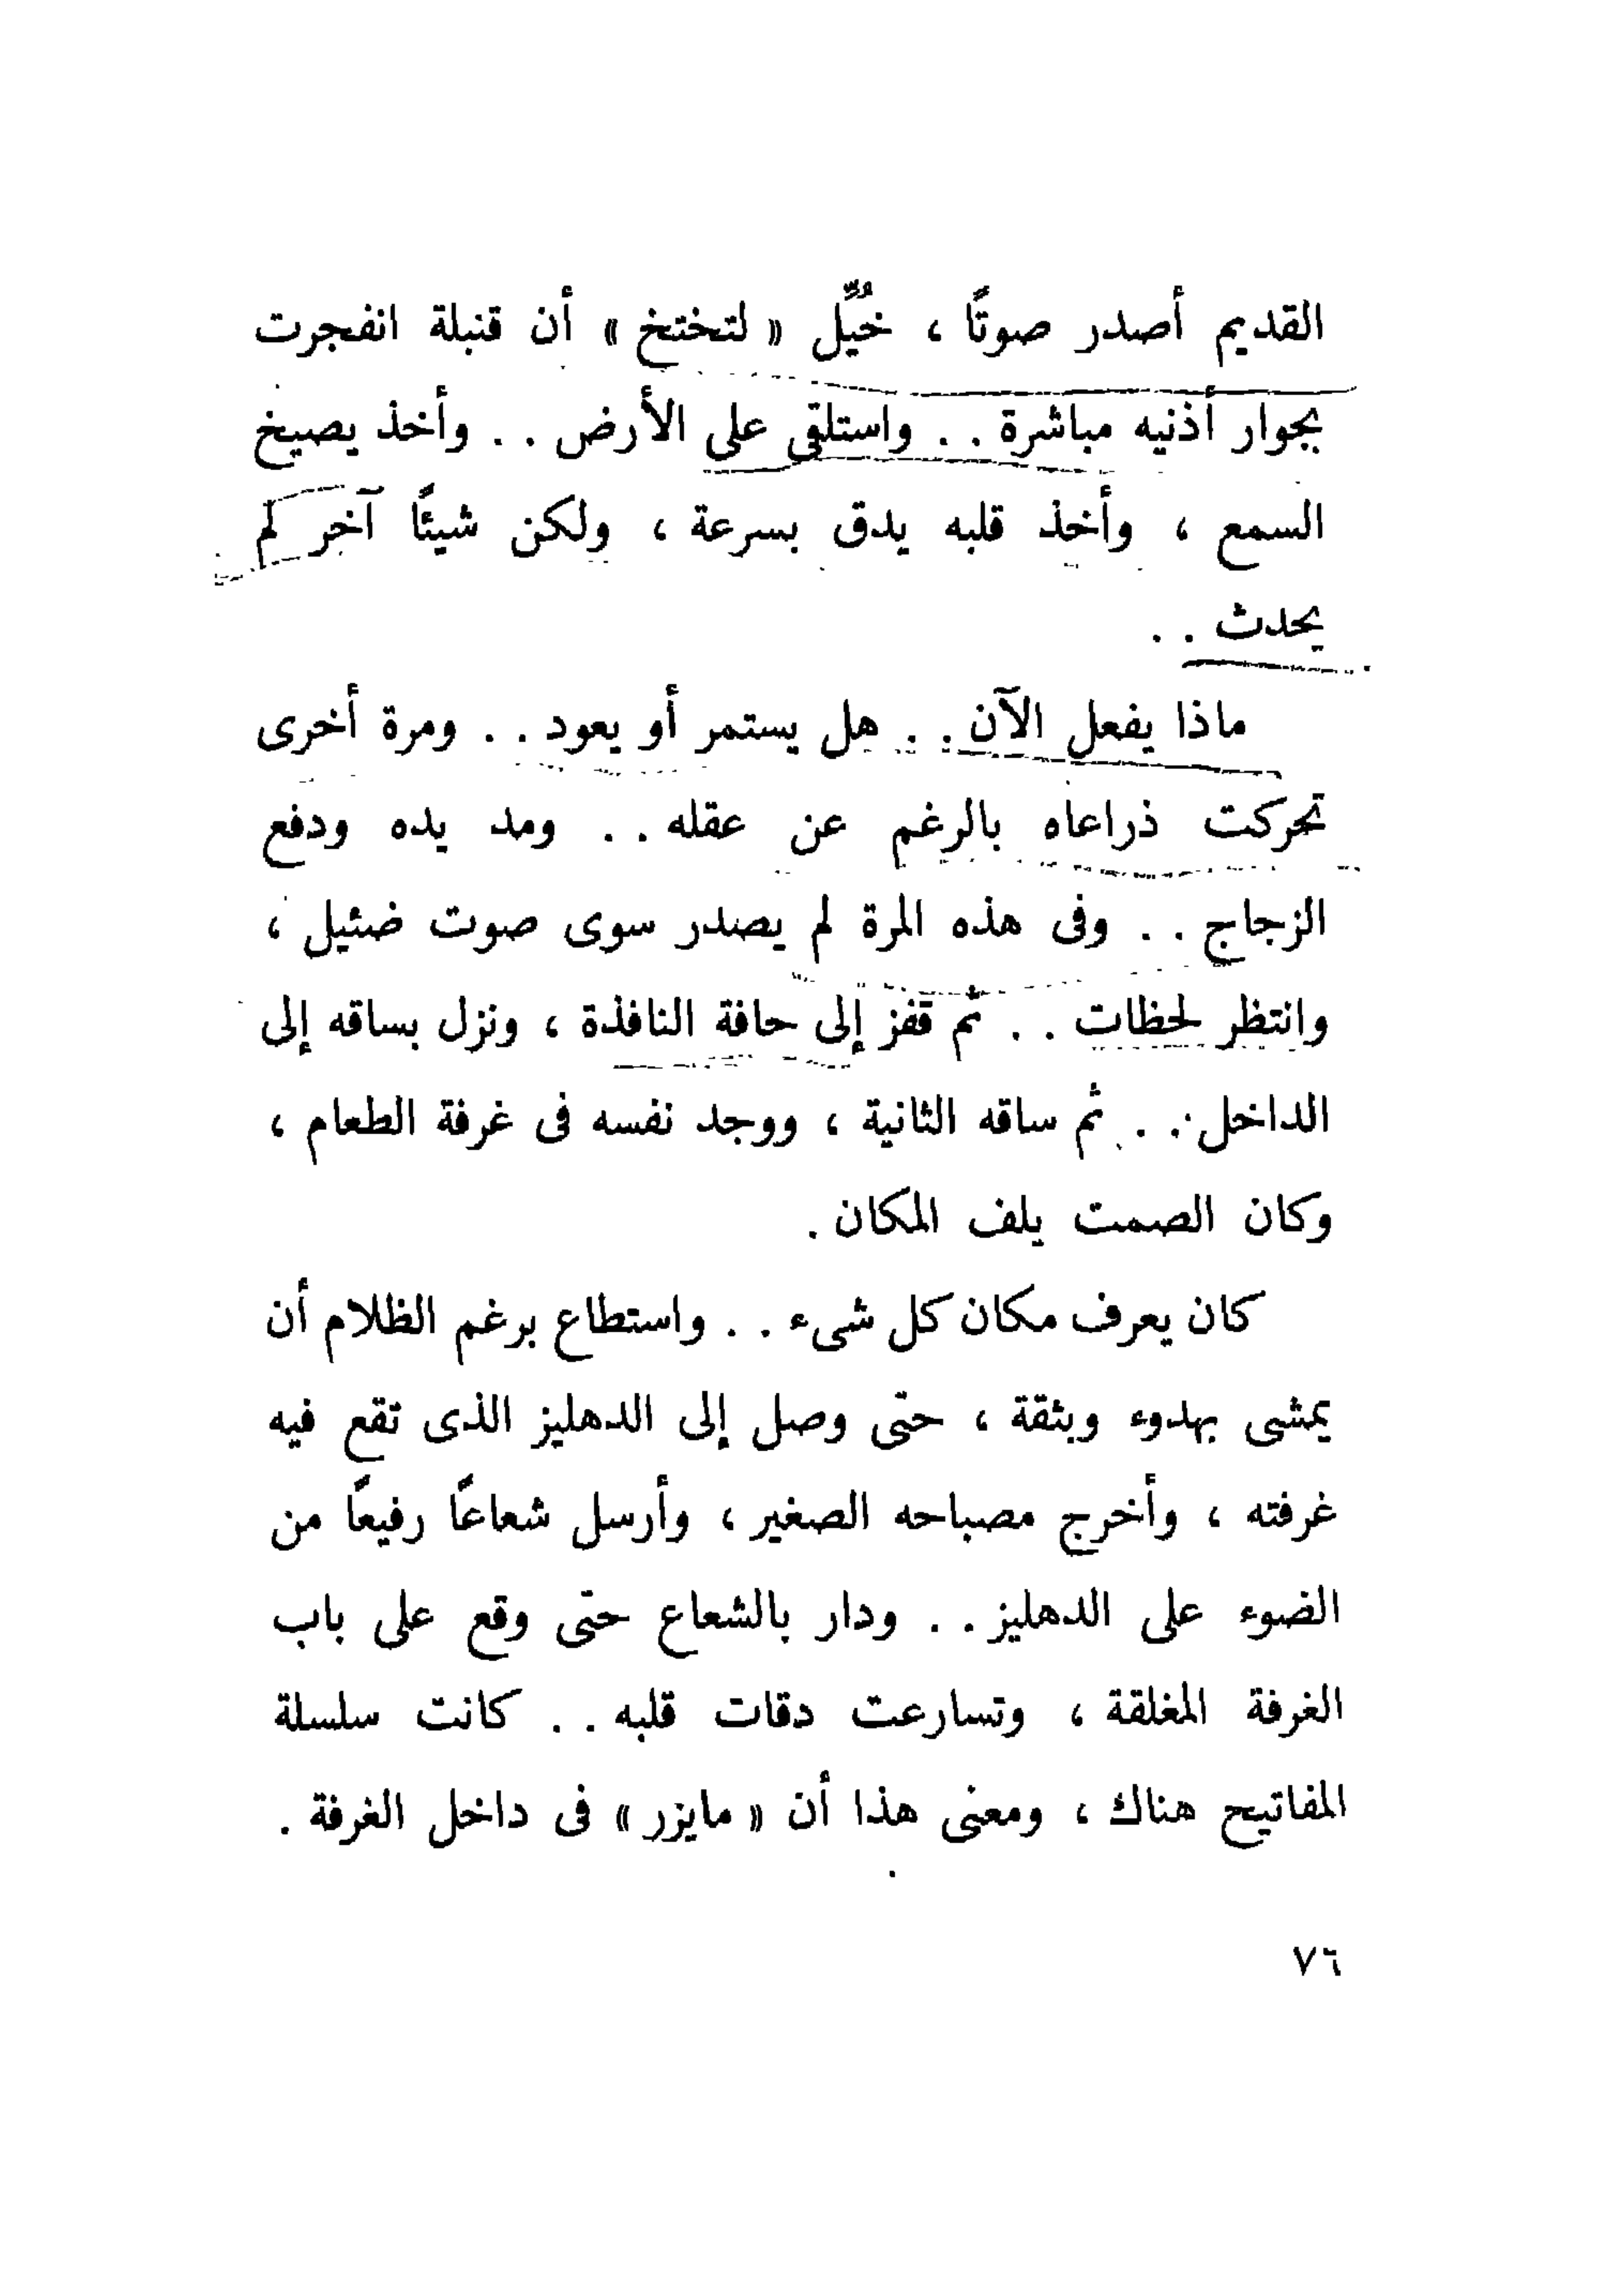 القديم أصدر صوتًا ، خُيِّل « لتختخ » أن قنبلة انفجرت
بجوار أذنيه مباشرة . . واستلقى على الأرض . . وأخذ يصيخ
السمع ، وأخذ قلبه يدق بسرعة ، ولكن شيئًا آخر لم
يحدث . .
ماذا يفعل الآن . . هل يستمر أو يعود . . ومرة أخرى
تحركت ذراعاه بالرغم عن عقله . . ومد يده ودفع
الزجاج . . وفى هذه المرة لم يصدر سوى صوت ضئيل ،
وانتظر لحظات . . ثم قفز إلى حافة النافذة ، ونزل بساقه إلى
الداخل . . ثم ساقه الثانية ، ووجد نفسه فى غرفة الطعام ،
وكان الصمت يلف المكان .
كان يعرف مكان كل شىء . . واستطاع برغم الظلام أن
يمشى بهدوء وبثقة ، حتى وصل إلى الدهليز الذى تقع فيه
غرفته ، وأخرج مصباحه الصغير ، وأرسل شعاعًا رفيعًا من
الضوء على الدهليز . . ودار بالشعاع حتى وقع على باب
الغرفة المغلقة ، وتسارعت دقات قلبه . . كانت سلسلة
المفاتيح هناك ، ومعنى هذا أن « مايزر » فى داخل الغرفة .
٧٦